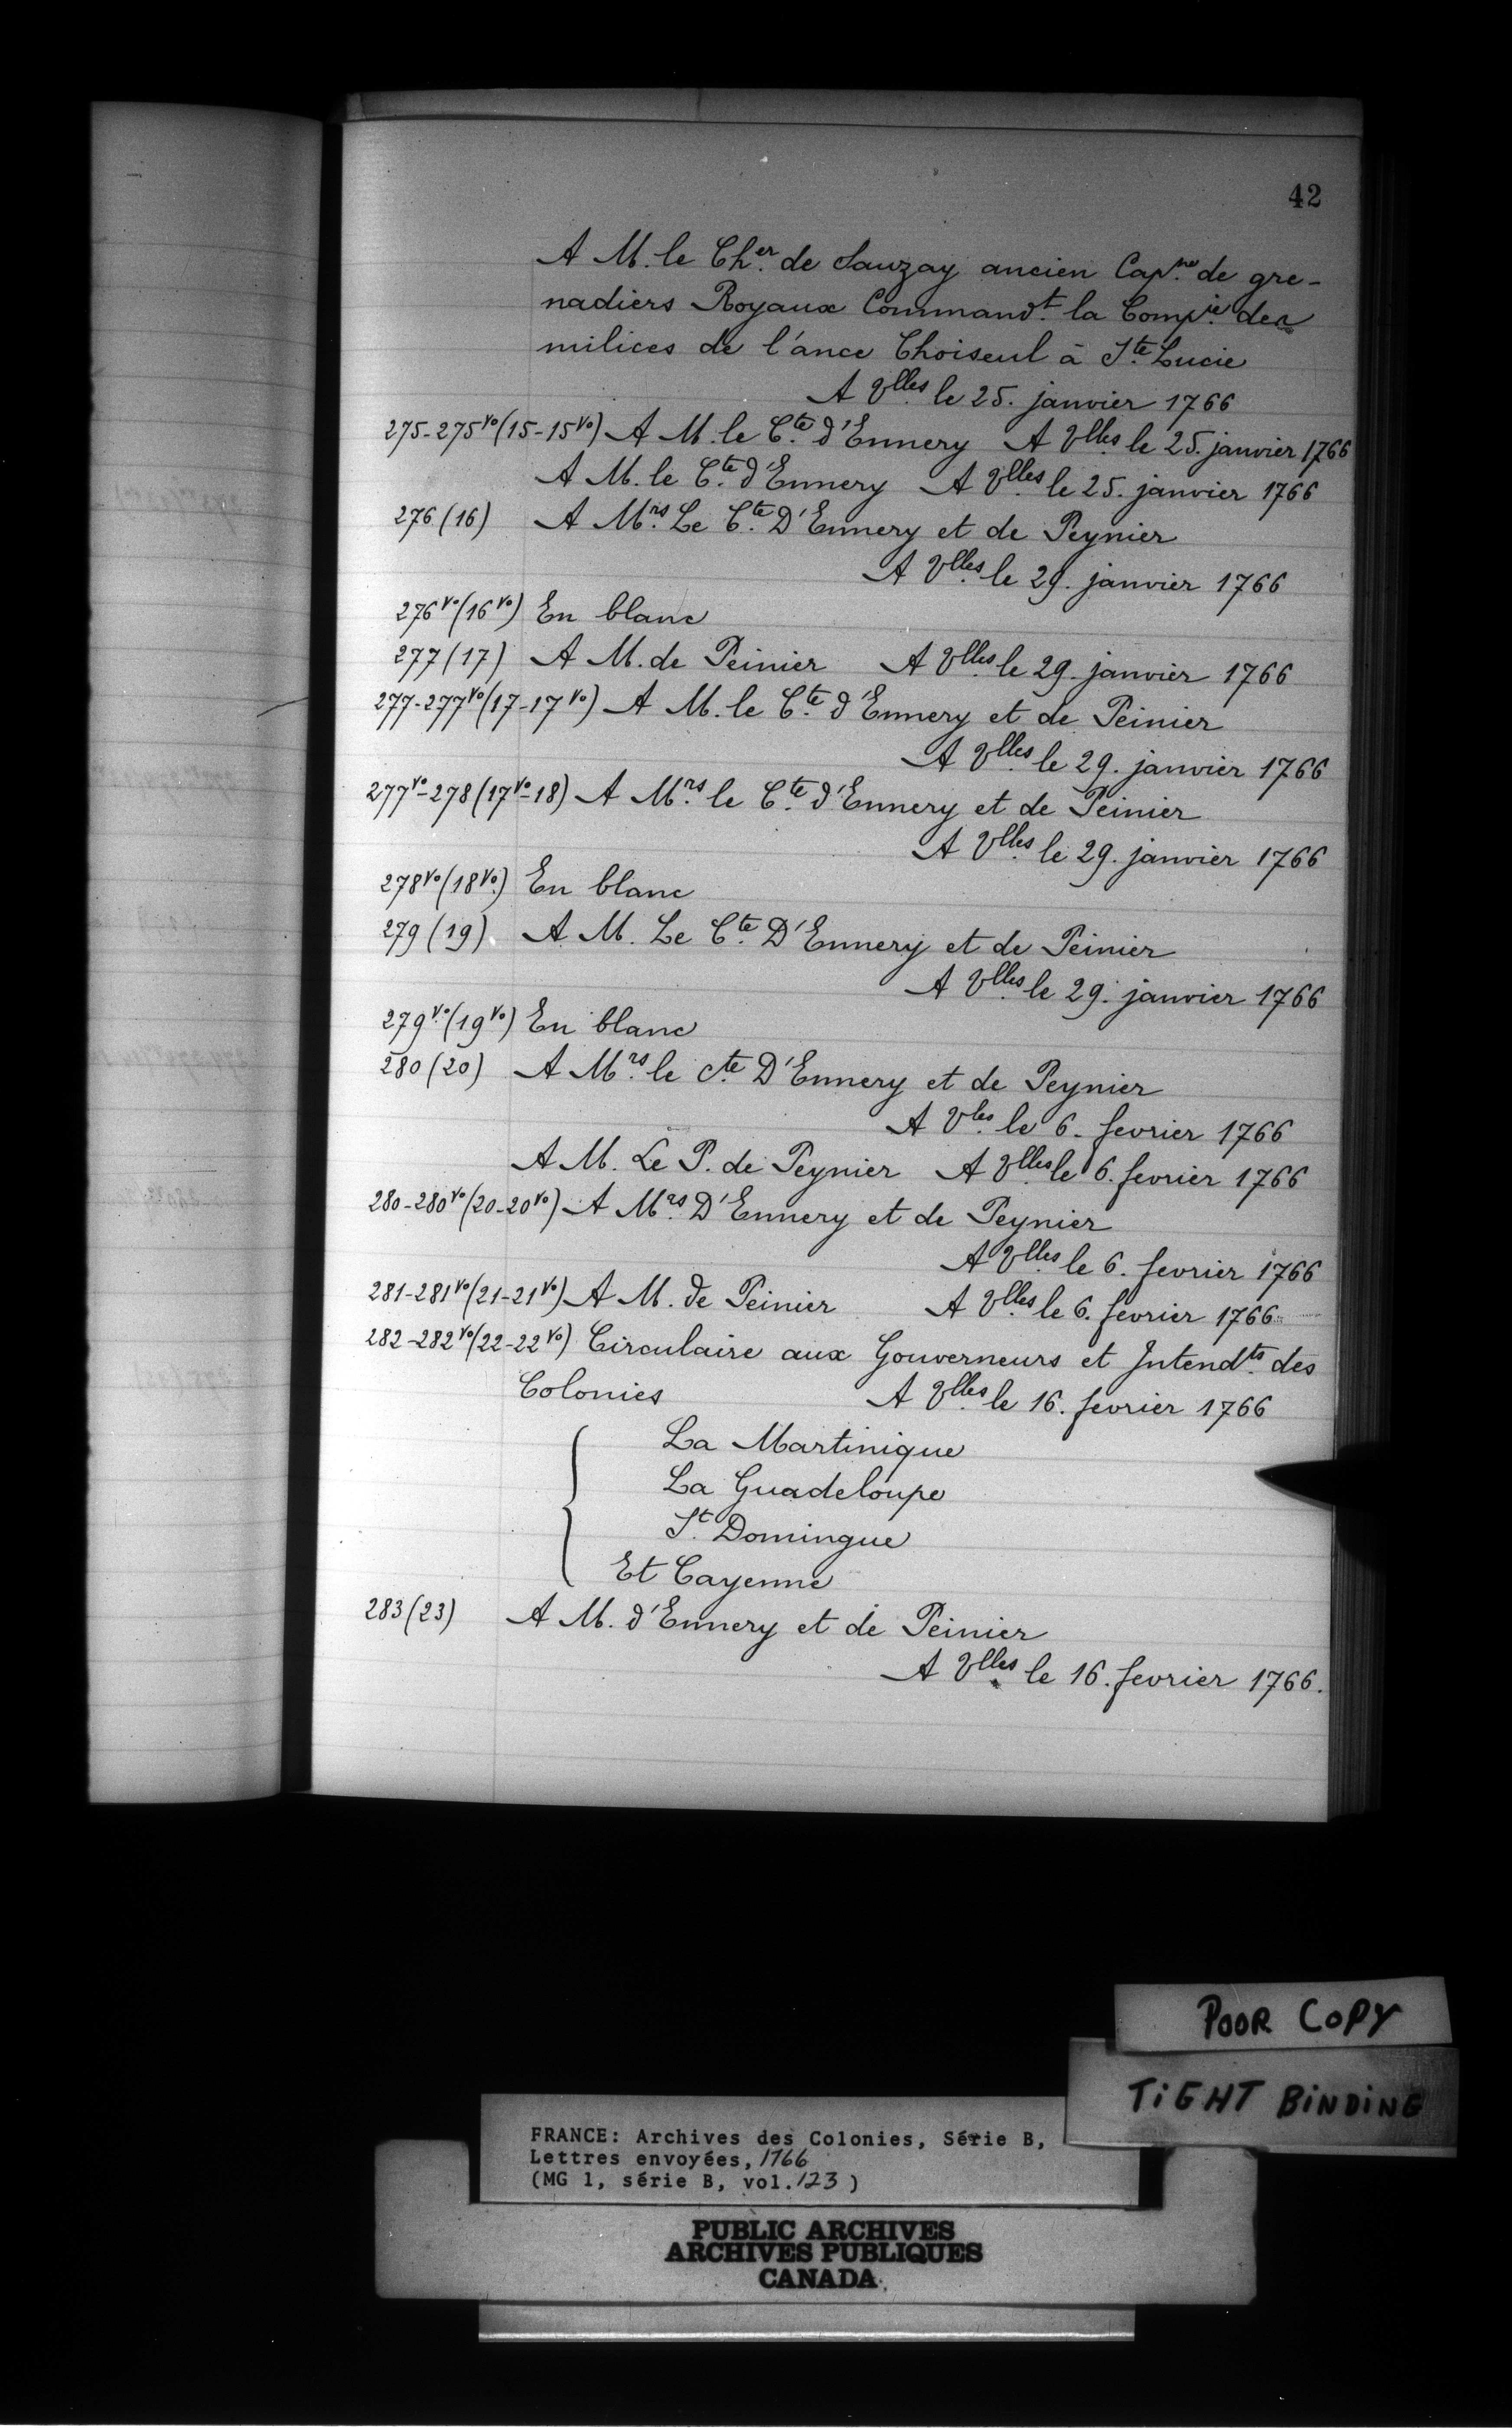 42
A M. le Cher. de Sauzay ancien Capne. de gre-
nadiers Royaux Commandt. la Compie. des
milices de l'ance Choiseul à Ste. Lucie
A Vlles. le 25. janvier 1766
275-275vo (15-15vo) A M. le Cte. d'Ennery A Vlles. le 25. janvier 1766
A M. le Cte. d'Ennery A Vlles. le 25. janvier 1766
276 (16) A Mrs. Le Cte. D'Ennery et de Peynier
A Vlles. le 29. janvier 1766
276vo (16vo) En blanc
277 (17) A M. de Peinier A Vlles. le 29. janvier 1766
277-277vo (17-17vo) A M. le Cte. d'Ennery et de Peinier
A Vlles. le 29. janvier 1766
277vo-278 (17vo-18) A Mrs. le Cte. d'Ennery et de Peinier
A Vlles. le 29. janvier 1766
278vo (18vo) En blanc
279 (19) A M. Le Cte. D'Ennery et de Peinier
A Vlles. le 29. janvier 1766
279vo (19vo) En blanc
280 (20) A Mrs. le cte. D'Ennery et de Peynier
A Vles. le 6. fevrier 1766
A M. Le P. de Peynier A Vlles. le 6. fevrier 1766
280-280vo (20-20vo) A Mrs. D'Ennery et de Peynier
A Vlles. le 6. fevrier 1766
281-281vo (21-21vo) A M. de Peinier A Vlles. le 6. fevrier 1766
282-282vo (22-22vo) Circulaire aux Gouverneurs et Intendts. des
Colonies A Vlles. le 16. fevrier 1766
La Martinique
La Guadeloupe
St. Domingue
Et Cayenne
283 (23) A M. d'Ennery et de Peinier
A Vlles. le 16. fevrier 1766.
POOR COPY
TIGHT BINDING
FRANCE: Archives des Colonies, Série B,
Lettres envoyées, 1766
(MG 1, série B, vol. 123)
PUBLIC ARCHIVES
ARCHIVES PUBLIQUES
CANADA